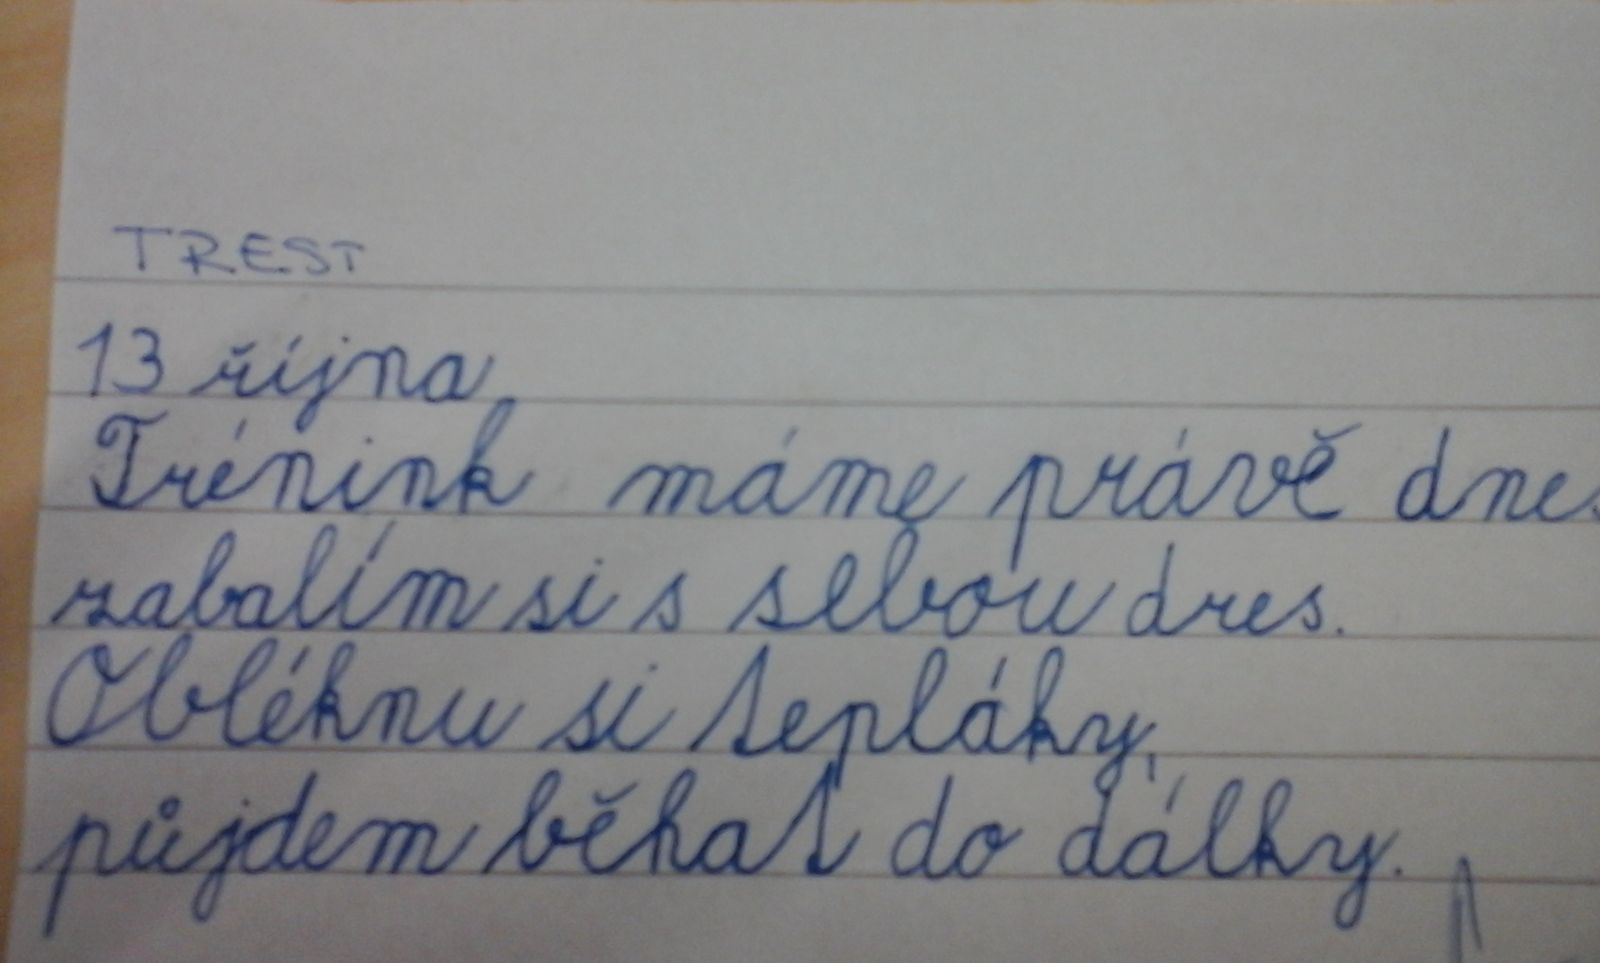 TREST
13 října
Trénink máme právě dnes
zabalím si s sebou dres.
Obléknu si tepláky,
půjdem běhat do dálky.